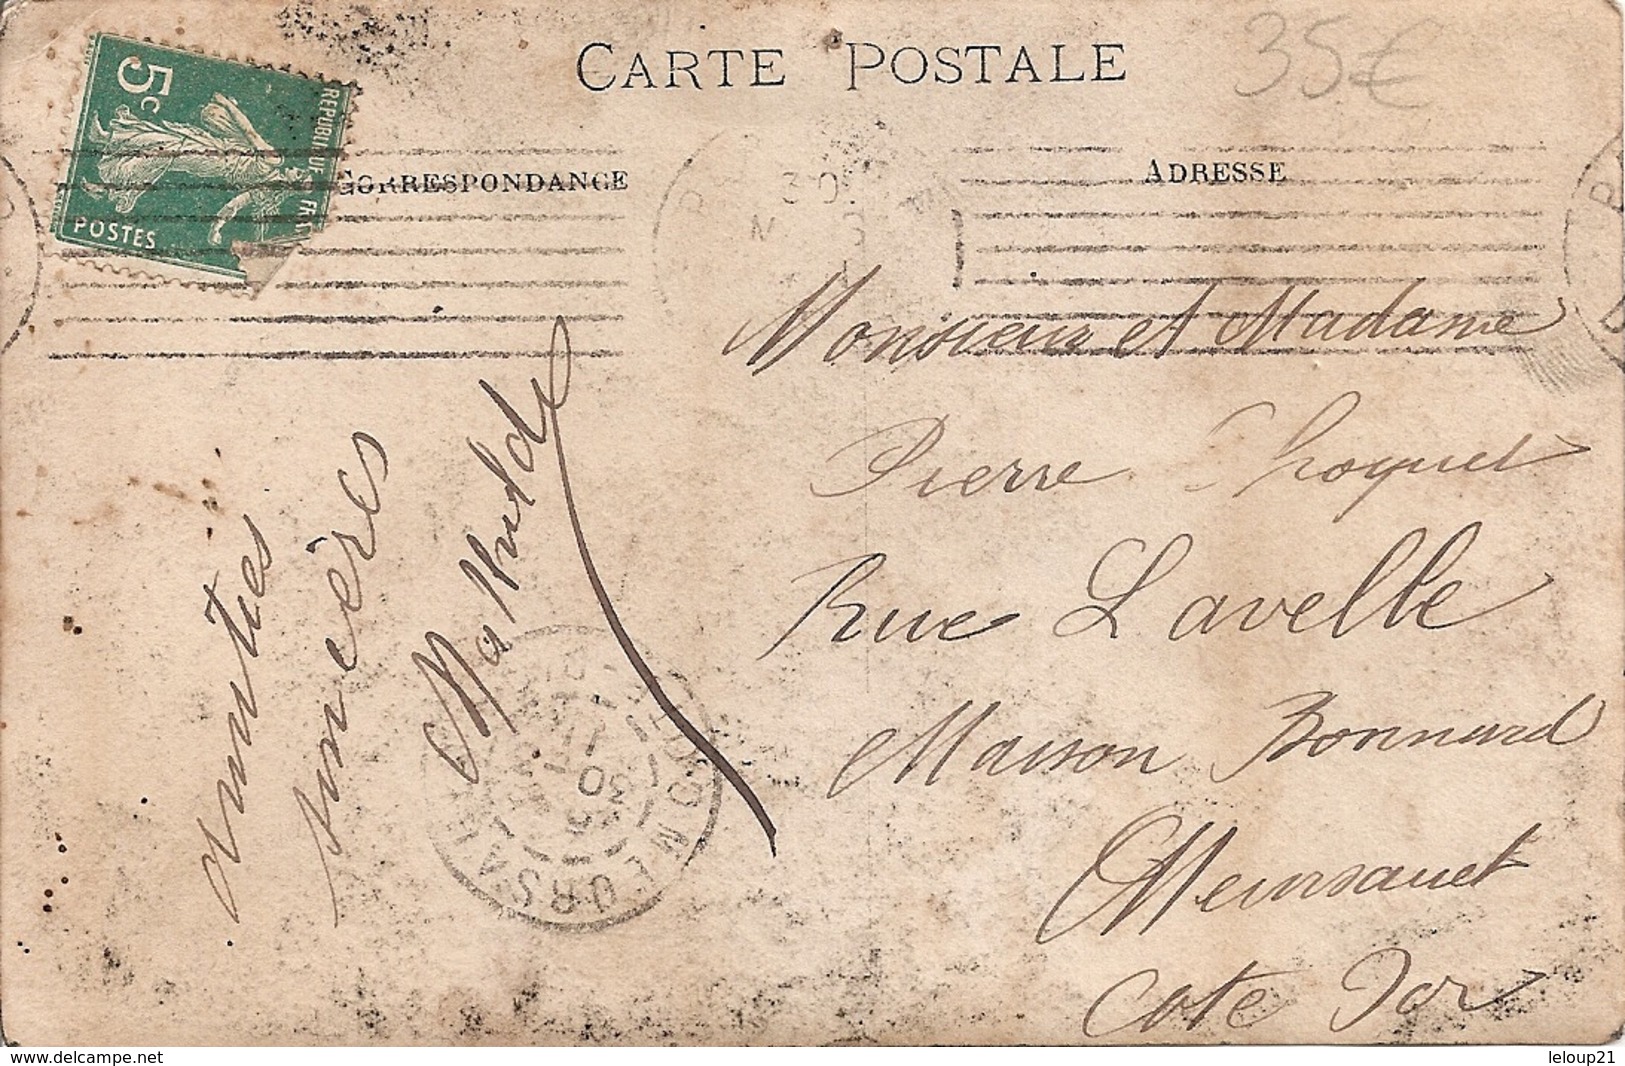 CARTE POSTALE
35€
5c
REPUBLIQUE FRAN
POSTES
CORRESPONDANCE
ADRESSE
30
amitiés
sincères
Mathilde
Monsieur et Madame
Pierre Choquet
Rue Lavelle
Maison Bonnard
Meursault
Cote Dor
MEURSAULT
COTE D'OR
www.delcampe.net
leloup21